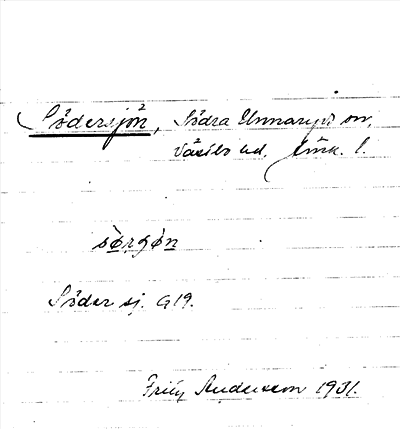 Södersjön, Södra Unnaryds sn,
Västbo hd, Jönk. l.
sørşøn
Söder sj. G19.
Fritz Andersson 1931.